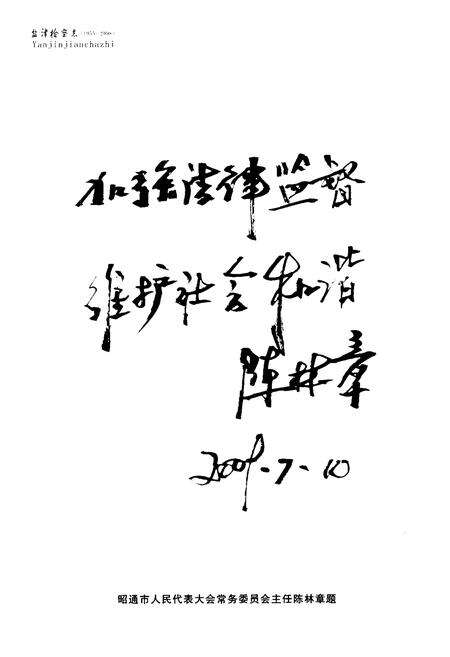 盐津检察志(1955-2008)
Yanjinjianchazhi
加强法律监督
维护社会和谐
陈林章
2009.7.10
昭通市人民代表大会常务委员会主任陈林章题